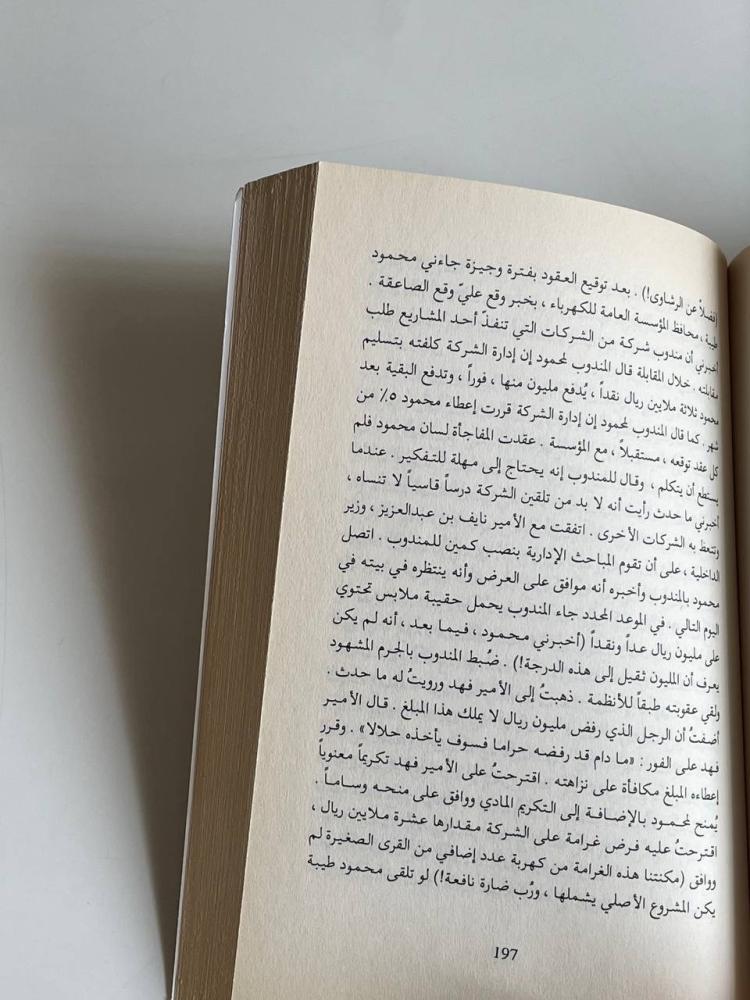 (فضلاً عن الرشاوى!) . بعد توقيع العقود بفترة وجيزة جاءني محمود
طيبة ، محافظ المؤسسة العامة للكهرباء ، بخبر وقع عليّ وقع الصاعقة .
أخبرني أن مندوب شركة من الشركات التي تنفذّ أحد المشاريع طلب
مقابلته . خلال المقابلة قال المندوب لمحمود إن إدارة الشركة كلفته بتسليم
محمود ثلاثة ملايين ريال نقداً ، يُدفع مليون منها ، فوراً ، وتدفع البقية بعد
شهر . كما قال المندوب لمحمود إن إدارة الشركة قررت إعطاء محمود ٥٪ من
كل عقد توقعه ، مستقبلاً ، مع المؤسسة . عقدت المفاجأة لسان محمود فلم
يستطع أن يتكلم ، وقال للمندوب إنه يحتاج إلى مهلة للتفكير . عندما
أخبرني ما حدث رأيت أنه لا بد من تلقين الشركة درساً قاسياً لا تنساه ،
وتتعظ به الشركات الأخرى . اتفقت مع الأمير نايف بن عبدالعزيز ، وزير
الداخلية ، على أن تقوم المباحث الإدارية بنصب كمين للمندوب . اتصل
محمود بالمندوب وأخبره أنه موافق على العرض وأنه ينتظره في بيته في
اليوم التالي . في الموعد المحدد جاء المندوب يحمل حقيبة ملابس تحتوي
على مليون ريال عداً ونقداً (أخبرني محمود ، فيما بعد ، أنه لم يكن
يعرف أن المليون ثقيل إلى هذه الدرجة!) . ضُبط المندوب بالجرم المشهود
ولقي عقوبته طبقاً للأنظمة . ذهبتُ إلى الأمير فهد ورويتُ له ما حدث .
أضفتُ أن الرجل الذي رفض مليون ريال لا يملك هذا المبلغ . قال الأمير
فهد على الفور : «ما دام قد رفضه حراما فسوف يأخذه حلالا» . وقرر
إعطاءه المبلغ مكافأة على نزاهته . اقترحتُ على الأمير فهد تكريماً معنوياً
يُمنح لمحمود بالإضافة إلى التكريم المادي ووافق على منحه وساماً .
اقترحتُ عليه فرض غرامة على الشركة مقدارها عشرة ملايين ريال ،
ووافق (مكنتنا هذه الغرامة من كهربة عدد إضافي من القرى الصغيرة لم
يكن المشروع الأصلي يشملها ، ورُب ضارة نافعة!) لو تلقى محمود طيبة
197